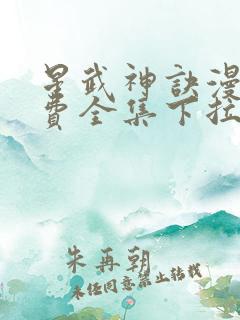 星武神訣漫
費全集下拉
朱再朝
未经同意禁止转载